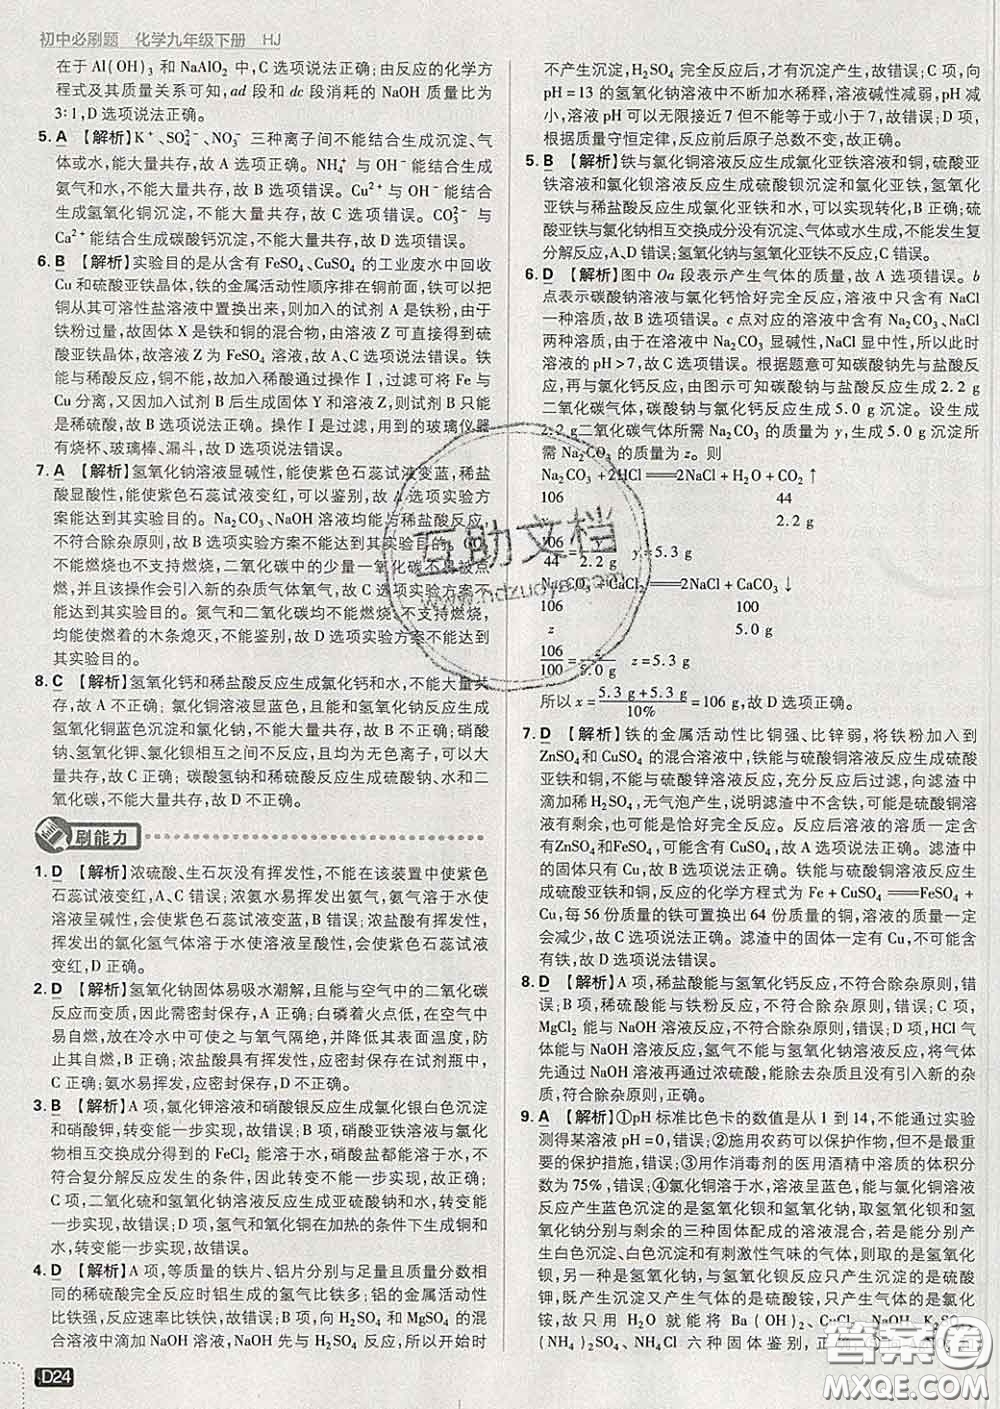 初中必刷题 化学九年级下册 HJ
在于 Al(OH)₃ 和 NaAlO₂ 中,C 选项说法正确;由反应的化学方
程式及其质量关系可知,ad 段和 dc 段消耗的 NaOH 质量比为
3:1,D 选项说法正确。
5. A 【解析】K⁺、SO₄²⁻、NO₃⁻ 三种离子间不能结合生成沉淀、气
体或水,能大量共存,故 A 选项正确。NH₄⁺ 与 OH⁻ 能结合生成
氨气和水,不能大量共存,故 B 选项错误。Cu²⁺ 与 OH⁻ 能结合
生成氢氧化铜沉淀,不能大量共存,故 C 选项错误。CO₃²⁻ 与
Ca²⁺ 能结合生成碳酸钙沉淀,不能大量共存,故 D 选项错误。
6. B 【解析】实验目的是从含有 FeSO₄、CuSO₄ 的工业废水中回收
Cu 和硫酸亚铁晶体,铁的金属活动性顺序排在铜前面,铁可以把
铜从其可溶性盐溶液中置换出来,则加入的试剂 A 是铁粉,由于
铁粉过量,故固体 X 是铁和铜的混合物,由溶液 Z 可直接得到硫
酸亚铁晶体,故溶液 Z 为 FeSO₄ 溶液,故 A、C 选项说法错误。铁
能与稀酸反应,铜不能,故加入稀酸通过操作Ⅰ,过滤可将 Fe 与
Cu 分离,又因加入试剂 B 后生成固体 Y 和溶液 Z,则试剂 B 只能
是稀硫酸,故 B 选项说法正确。操作Ⅰ是过滤,用到的玻璃仪器
有烧杯、玻璃棒、漏斗,故 D 选项说法错误。
7. A 【解析】氢氧化钠溶液显碱性,能使紫色石蕊试液变蓝,稀盐
酸显酸性,能使紫色石蕊试液变红,可以鉴别,故 A 选项实验方
案能达到其实验目的。Na₂CO₃、NaOH 溶液均能与稀盐酸反应,
不符合除杂原则,故 B 选项实验方案不能达到其实验目的。CO₂
不能燃烧也不支持燃烧,二氧化碳中的少量一氧化碳不易被点
燃,并且该操作会引入新的杂质气体氧气,故 C 选项实验方案不
能达到其实验目的。氮气和二氧化碳均不能燃烧、不支持燃烧,
均能使燃着的木条熄灭,不能鉴别,故 D 选项实验方案不能达到
其实验目的。
8. C 【解析】氢氧化钙和稀盐酸反应生成氯化钙和水,不能大量共
存,故 A 错误;氯化铜溶液显蓝色,且能与氢氧化钠反应生成氢
氧化铜蓝色沉淀和氯化钠,不能大量共存,故 B 不正确;硝酸
钠、氢氧化钾、氯化钡相互之间不反应,且均为无色离子,可以大
量共存,故 C 正确;碳酸氢钠和稀硫酸反应生成硫酸钠、水和二
氧化碳,不能大量共存,故 D 错误。
刷能力
1. D 【解析】浓硫酸、生石灰没有挥发性,不能在该装置中使紫色
石蕊试液变红,A、C 错误;浓氨水易挥发出氨气,氨气溶于水使
溶液呈碱性,会使紫色石蕊试液变蓝,B 错误;浓盐酸有挥发性,
挥发出的氯化氢气体溶于水使溶液呈酸性,会使紫色石蕊试液
变红,D 正确。
2. D 【解析】氢氧化钠固体易吸水潮解,且能与空气中的二氧化碳
反应而变质,因此需密封保存,A 正确;白磷着火点低,在空气中
易自燃,放在冷水中可使之与氧气隔绝,并降低其表面温度,防
止自燃,B 正确;浓盐酸具有挥发性,应密封保存在试剂瓶中,
C 正确;氨水易挥发,应密封保存,D 错误。
3. B 【解析】A 项,氯化钾溶液和硝酸银反应生成氯化银白色沉淀
和硝酸钾,转变能一步实现,故错误;B项,硝酸亚铁溶液与盐酸
相互交换成分得到的 FeCl₂ 能溶于水,硝酸盐都能溶于水,所以
不符合复分解反应发生的条件,转变不能一步实现,故正确;
C 项,二氧化硫和氢氧化钠溶液反应生成亚硫酸钠和水,转变能
一步实现,故错误;D 项,氢气和氧化铜在加热的条件下生成铜和
水,转变能一步实现,故错误。
4. D 【解析】A 项,等质量的铁片、铝片分别与足量且质量分数相
同的稀硫酸完全反应时铝生成的氢气比铁多;铝的金属活动性
比铁强,反应速率比铁快,故错误;B项,向 H₂SO₄ 和 MgSO₄ 的混
合溶液中滴加 NaOH 溶液,NaOH 先与 H₂SO₄ 反应,所以开始时
D24
不产生沉淀,H₂SO₄ 完全反应后,才有沉淀产生,故错误;C项,向
pH = 13 的氢氧化钠溶液中不断加水稀释,溶液碱性减弱,pH 减
小,所以 pH 可以无限接近 7 但不能等于或小于 7,故错误;D 项,
根据质量守恒定律,反应前后原子总数不变,故正确。
5. B 【解析】铁与氯化铜溶液反应生成氯化亚铁溶液和铜,硫酸亚
铁溶液和氯化钡溶液反应生成硫酸钡沉淀和氯化亚铁,氢氧化
亚铁与稀盐酸反应生成氯化亚铁和水,可以实现转化,B 正确;
硫酸亚铁与氯化钠相互交换成分没有沉淀、气体或水生成,不能发生复
分解反应,A、D 错误;氢氧化钠与氢氧化亚铁不反应,C 错误。
6. D 【解析】图中 Oa 段表示产生气体的质量,故 A 选项错误。b
点表示碳酸钠溶液与氯化钙恰好完全反应,溶液中只含有 NaCl
一种溶质,故 B 选项错误。c 点对应的溶液中含有 Na₂CO₃、NaCl
两种溶质,由于 Na₂CO₃ 显碱性,NaCl 显中性,所以此时
溶液的 pH > 7,故 C 选项错误。根据题意可知碳酸钠先与盐酸反
应,再与氯化钙反应,由图示可知碳酸钠与盐酸反应生成 2.2 g
二氧化碳气体,碳酸钠与氯化钙反应生成 5.0 g 沉淀。设生成
2.2 g二氧化碳气体所需 Na₂CO₃ 的质量为 y,生成 5.0 g 沉淀所
需 Na₂CO₃ 的质量为 z。则
Na₂CO₃ + 2HCl══2NaCl + H₂O + CO₂↑
106 44
y 2.2 g
106/44 = y/2.2 g y = 5.3 g
Na₂CO₃ + CaCl₂══2NaCl + CaCO₃↓
106 100
z 5.0 g
106/100 = z/5.0 g z = 5.3 g
所以 x = (5.3 g + 5.3 g)/10% = 106 g,故 D 选项正确。
7. D 【解析】铁的金属活动性比铜强、比锌弱,将铁粉加入到
ZnSO₄和 CuSO₄ 的混合溶液中,铁能与硫酸铜反应生成硫酸
亚铁和铜,不能与硫酸锌溶液反应,充分反应后过滤,向滤渣中
滴加稀 H₂SO₄,无气泡产生,说明滤渣中不含铁,可能是硫酸铜溶
液有剩余,也可能是恰好完全反应。反应后溶液中的溶质一定
含有ZnSO₄和 FeSO₄,故 A 选项说法正确。滤渣中
的固体只含有 Cu,故 B 选项说法正确。铁能与硫酸铜溶液反应
生成硫酸亚铁和铜,反应的化学方程式为 Fe + CuSO₄══FeSO₄ +
Cu,每 56 份质量的铁可置换出 64 份质量的铜,溶液的质量一定
会减少,故 C 选项说法正确。滤渣中的固体一定有 Cu,不可能含
有铁,故 D 选项说法错误。
8. D 【解析】A 项,稀盐酸能与氢氧化钙反应,不符合除杂原则,错
误;B项,稀硫酸能与铁粉反应,不符合除杂原则,错误;C 项,
MgCl₂ 能与 NaOH 溶液反应,不符合除杂原则,错误;D项,HCl气
体能与 NaOH 溶液反应,氢气不能与氢氧化钠溶液反应,将气体
先通过 NaOH 溶液再通过浓硫酸,能除去杂质且没有引入新的杂
质,符合除杂原则,正确。
9. A 【解析】①pH 标准比色卡的数值是从 1 到 14,不能通过实验
测得某溶液 pH = 0,错误;②施用农药可以保护作物,但不是最重
要的保护措施,错误;③用作消毒剂的医用酒精中溶质的体积分
数为 75%,错误;④氯化铜溶于水,溶液呈蓝色,能与氯化铜溶液
反应产生蓝色沉淀的是氢氧化钡和氢氧化钠,取氢氧化钡和氢
氧化钠分别与剩余的三种固体配成的溶液混合,若是能分别产
生白色沉淀、白色沉淀和有刺激性气味的气体,则取的是氢氧化
钡,剩余的是氢氧化钠,与氢氧化钡反应只产生沉淀的是硫酸
钾,既产生沉淀又产生气体的是硫酸铵,只产生气体的是氯化铵,
故只用 H₂O 就能将 Ba(OH)₂、CuCl₂、NaOH、K₂SO₄、
(NH₄)₂SO₄、NH₄Cl 六种固体鉴别,正确。
互助文档
www.hdzuoye.com
答案圈
MXQE.COM